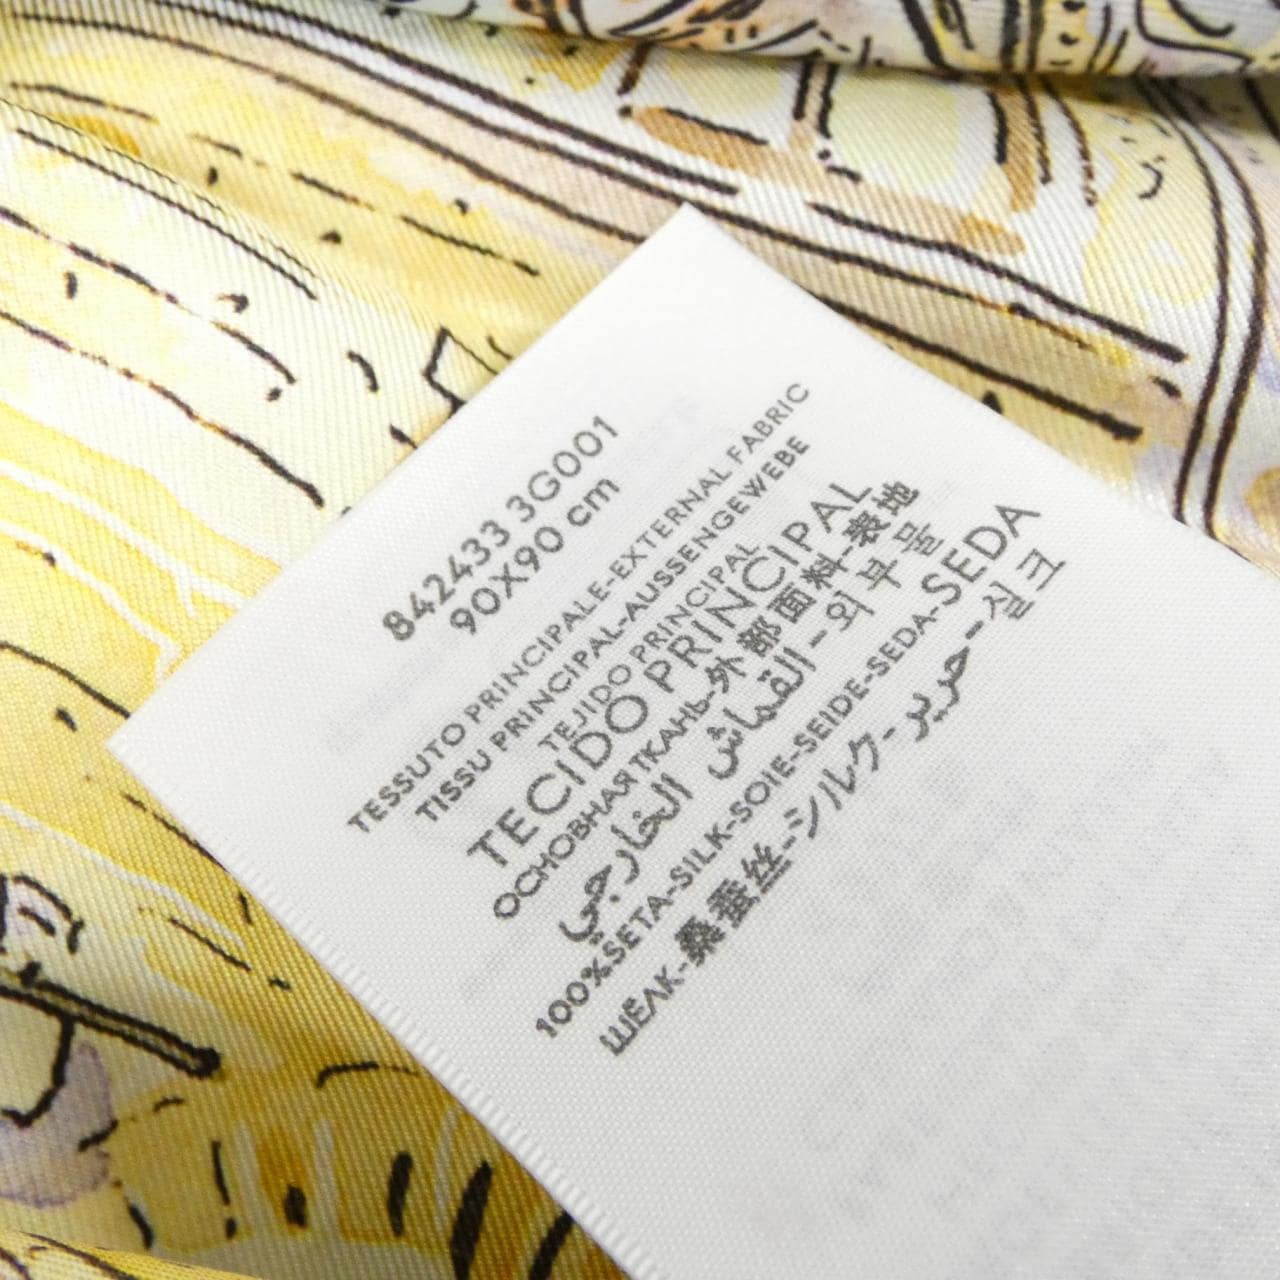 842433 3G001
90X90 cm
TESSUTO PRINCIPALE-EXTERNAL FABRIC
TISSU PRINCIPAL-AUSSENGEWEBE
TEJIDO PRINCIPAL
TECIDO PRINCIPAL
ОСНОВНАЯ ТКАНЬ-外部面料-表地
القماش الخارجي-외부물
100%SETA-SILK-SOIE-SEIDE-SEDA-SEDA
ШЁЛК-桑蚕丝-シルク-حرير-실크